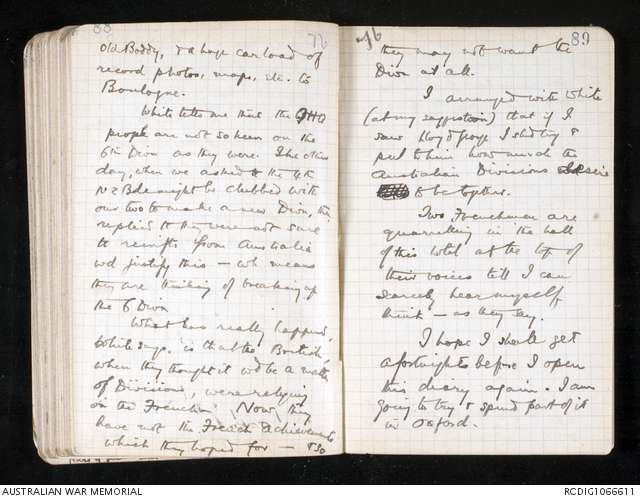 88
76
Old Boddy, & a huge car load of
record photos, maps, etc. to
Boulogne.
White tells me that the GHQ
people are not so keen on the
6th Divn as they were. The other
day, when we asked tt the 4th
NZ Bde might be clubbed with
our two to make a new Divn, they
replied tt they were not sure
tt reinfts from Australia
wd justify this - wh means
they are thinking of breaking up
the 6 Divn
What has really happened,
White says, is that the British,
when they thought it wd be a matter
of Divisions, were relying
on the French. Now they
have not the French achievements
which they hoped for - & so
76
89
they may not want the
Divn at all.
I arranged with White
(at my suggestion) that if I
saw Lloyd George I shd try &
put to him how much the
Australian Divisions desire
to be together.
Two Frenchmen are
quarrelling in the hall
of this hotel at the top of
their voices till I can
scarcely hear myself
think - as they say.
I hope I shall get
a fortnight before I open
this diary again. I am
going to try & spend part of it
in Oxford.
AUSTRALIAN WAR MEMORIAL
RCDIG1066611